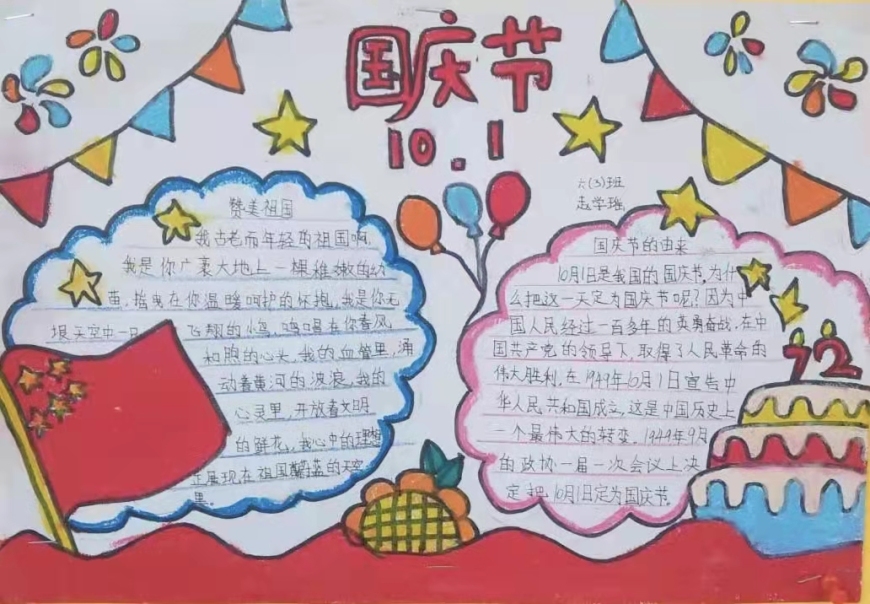 国庆节
10.1
六(3)班
赵学瑶
赞美祖国
我古老而年轻的祖国啊,
我是你广袤大地上一棵稚嫩的幼
苗,摇曳在你温暖呵护的怀抱,我是你无
垠天空中一只飞翔的小鸟,鸣唱在你春风
和煦的心头,我的血管里,涌
动着黄河的波浪,我的
心灵里,开放着文明
的鲜花,我心中的理想
正展现在祖国蔚蓝的天空
里。
国庆节的由来
10月1日是我国的国庆节,为什
么把这一天定为国庆节呢?因为中
国人民经过一百多年的英勇奋战,在中
国共产党的领导下,取得了人民革命的
伟大胜利,在1949年10月1日宣告中
华人民共和国成立,这是中国历史上
一个最伟大的转变。1949年9月
的政协一届一次会议上决
定把10月1日定为国庆节。
72